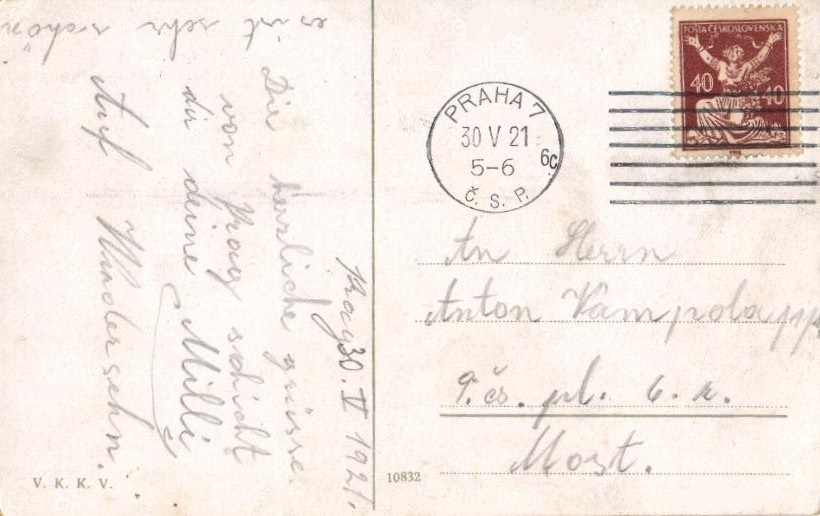 es ist sehr schön
Prag 30. V 1921.
Die herzliche grüsse
von Prag schickt
dir deine Milli
Auf Wiedersehn.
V. K. K. V.
10832
POŠTA ČESKOSLOVENSKÁ
40 40
PRAHA 7
30 V 21
5-6
6c
Č. S. P.
An Herrn
Anton
9. čs. pl. 6. r.
Most.